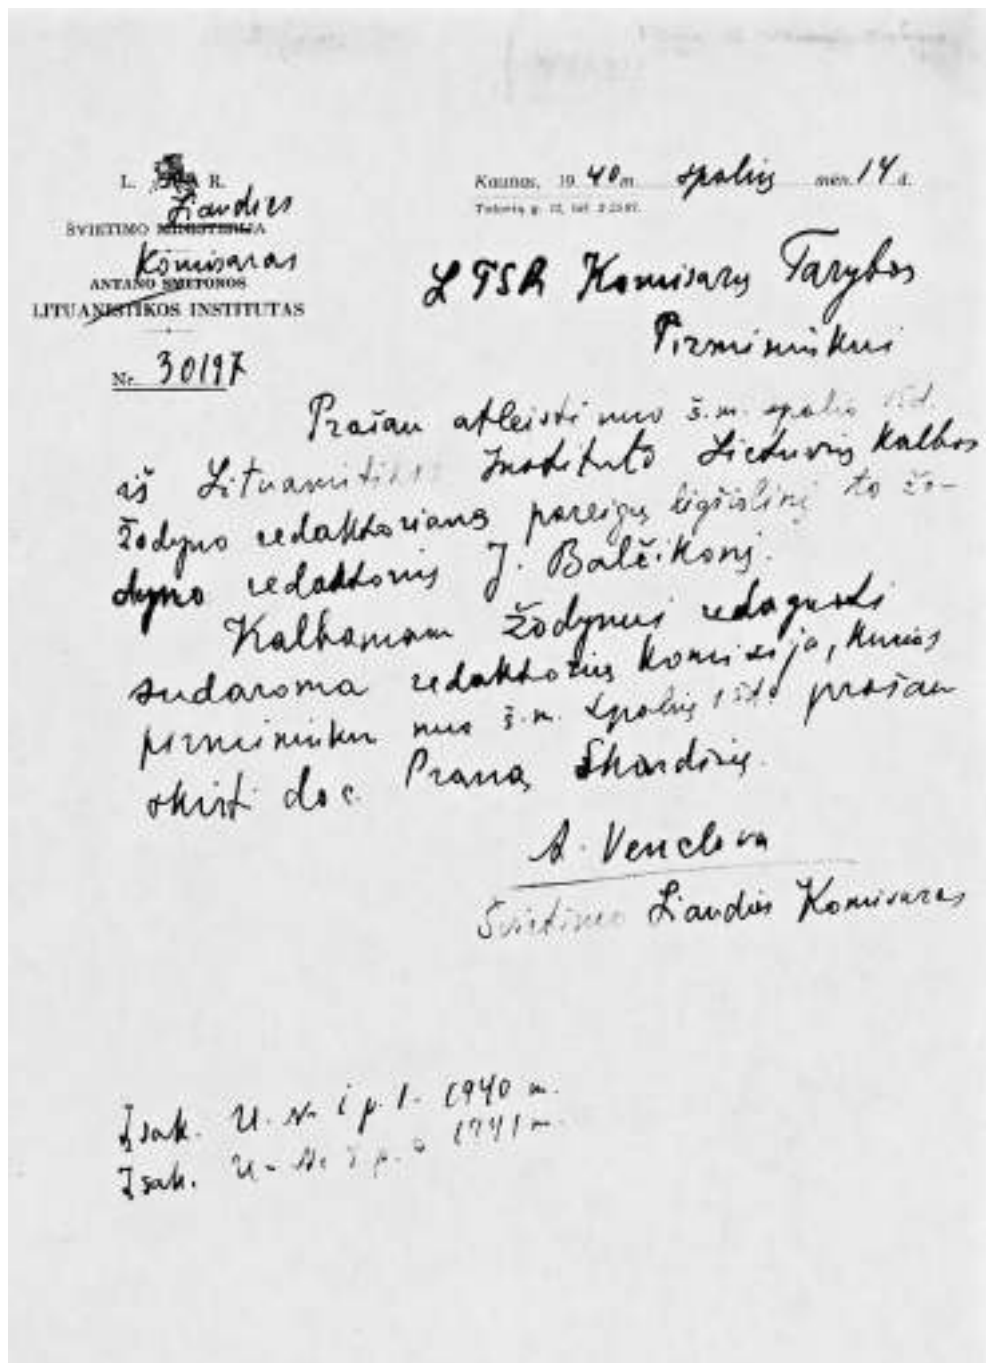 L. R.
Liaudies
ŠVIETIMO MINISTERIJA
Komisaras
ANTANO SMETONOS
LITUANISTIKOS INSTITUTAS
Nr. 30197
Kaunas, 19 40 m. spalių mėn. 14 d.
LTSR Komisarų Tarybos
Pirmininkui
Prašau atleisti nuo š.m. spalio
iš Instituto Lietuvių Kalbos
žodyno redaktoriaus pareigų ligšiolinį to žo-
dyno redaktorių J. Balčikonį.
Kalbamam žodynui redaguoti
sudaroma redaktorių komisija, kurios
pirmininku nuo š.m. spalių prašau
skirti doc. Praną Skardžių.
A. Venclova
Švietimo Liaudies Komisaras
Įsak. 1940 m.
Įsak. 1941 m.